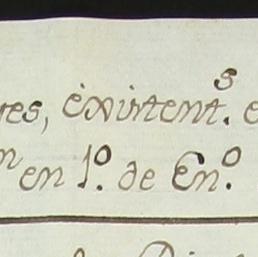 res, existent.s e
n en 1.o de En.o